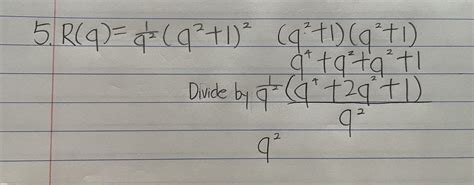 5. R(q) = 1/q² (q²+1)² (q²+1)(q²+1)
q⁴+q²+q²+1
Divide by 1/q² (q⁴+2q²+1)
q²
q²